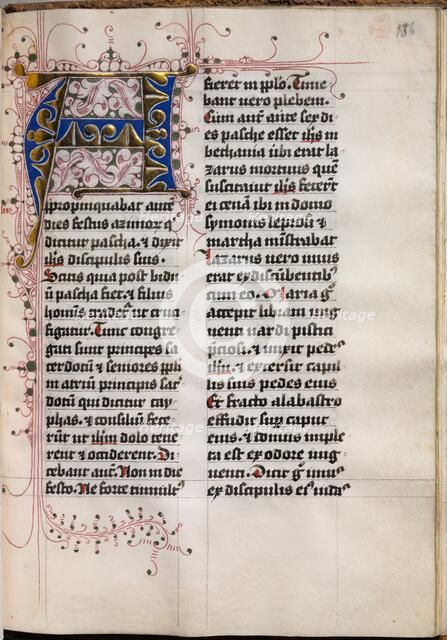 186
A
ppropinquabat aut̄
dies festus azimoꝝ q̄
dicitur pascha. ⁊ dixit
ih̄s discipulis suis.
Scitis quia post bidu
ū pascha fiet. ⁊ filius
hominis tradet͛ ut cruci
figatur. Tunc congre
gati sunt principes sa
cerdotū ⁊ seniores ppli
in atriū principis sac̄
dotū qui dicitur cay
phas. ⁊ consiliū fece
rūt ut ih̄m dolo tene
rent ⁊ occiderent. Di
cebant aut̄. Non in die
festo. Ne forte tumult᷒
fieret in pp̄lo. Time
bant vero plebem.
Cum aut̄ ante sex di
es pasche esset ih̄s in
bethania ubi erat la
zarus mortuus quē
suscitauit ih̄s fecer̄t
ei cenā ibi in domo
symonis leprosi ⁊
martha mīstrabat
Lazarus vero unus
erat ex discūbentib᷒
cum eo. Maria g̊
accepit libram ung
uenti nardi pistici
p̄ciosi. ⁊ unxit pedes
ih̄u. ⁊ extersit capil
lis suis pedes eius
Et fracto alabastro
effudit suꝑ caput
eius. ⁊ domus imple
ta est ex odore ung
uenti. Dicit g̊ unus
ex discipulis ei᷒ iudas
Heritage